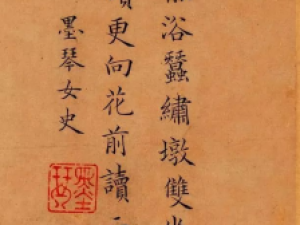 浴蠶繡墩雙
更向花前讀
墨琴女史